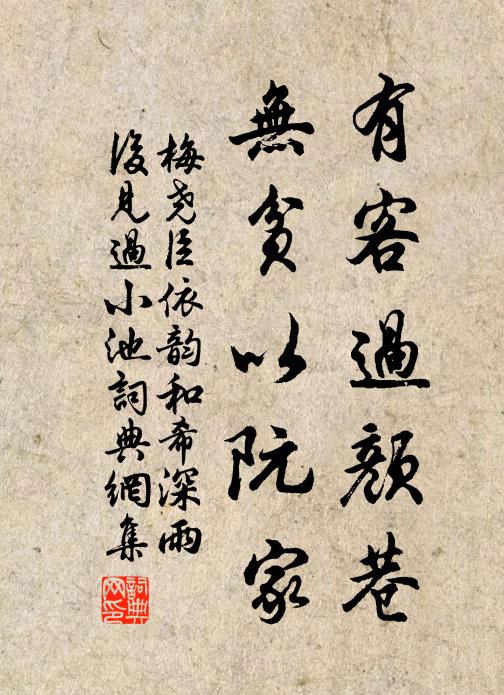 有客過顏巷
無貧以阮家
梅堯臣依韵和希深雨
後見過小池詞典網集
詞典
网印